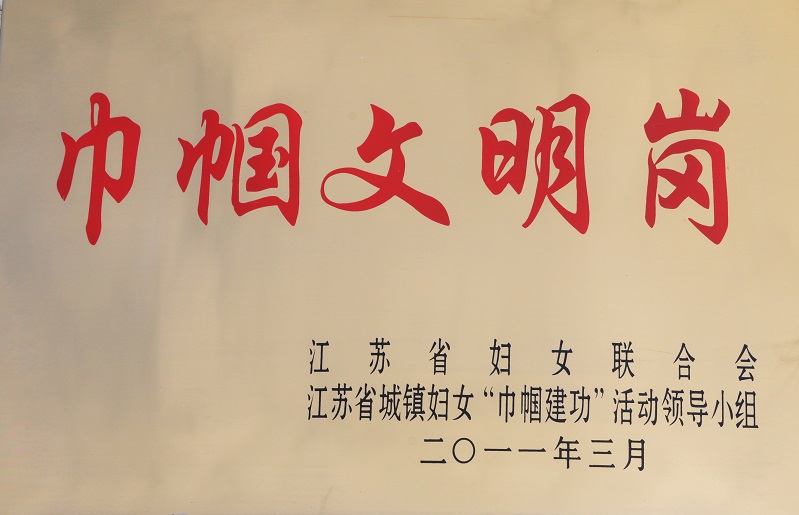 巾帼文明岗
江苏省妇女联合会
江苏省城镇妇女“巾帼建功”活动领导小组
二〇一一年三月